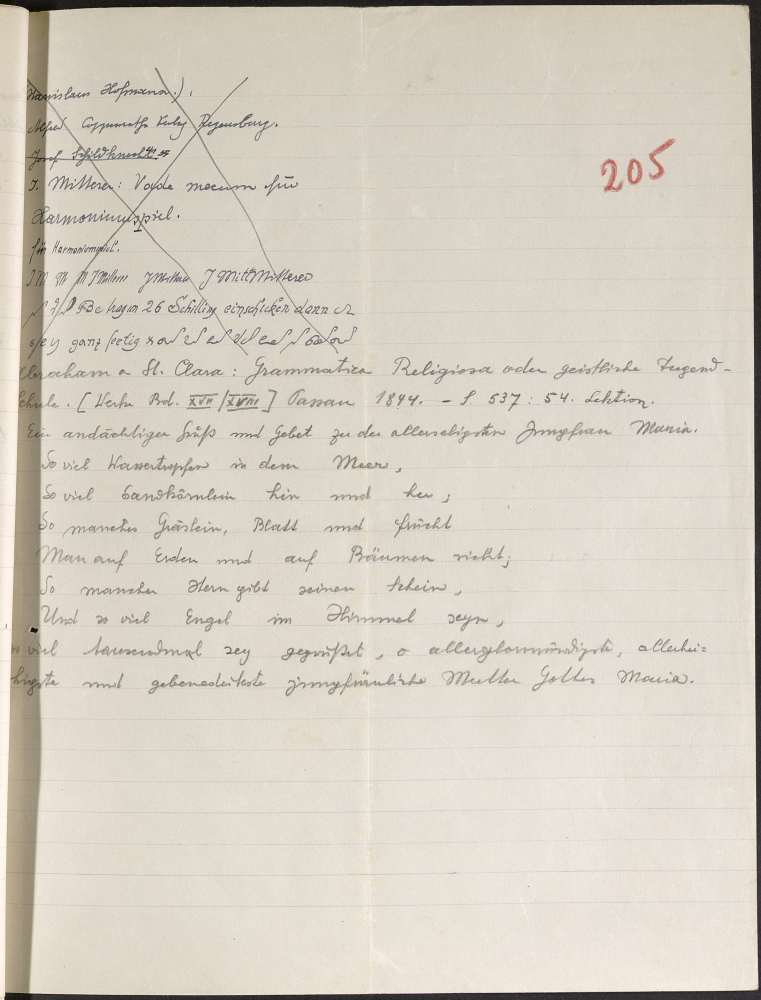 Stanislaus Hofmann).
Alfred Coppenraths Verlag Regensburg.
Josef Schildknecht
J. Mitterer: Vade mecum für
Harmoniumspiel.
für Harmoniumspiel.
205
J M M M J Mitterer J Mitterer J Mitt Mitterer
Betrag in 26 Schilling einschicken dann
ganz fertig
Abraham a St. Clara: Grammatica Religiosa oder geistliche Tugend-
schule. [Werke Bd. XVII/XVIII] Passau 1844. - S. 537: 54. Lektion.
Ein andächtiger Gruß und Gebet zu der allerseligsten Jungfrau Maria.
So viel Wassertropfen in dem Meer,
So viel Sandkörnlein hin und her,
So manches Gräslein, Blatt und Frücht
Man auf Erden und auf Bäumen sicht;
So mancher Stern gibt seinen Schein,
Und so viel Engel im Himmel seyn,
So viel tausendmal sey gegrüßet, o allerglorwürdigste, allerhei=
ligste und gebenedeiteste jungfräuliche Mutter Gottes Maria.